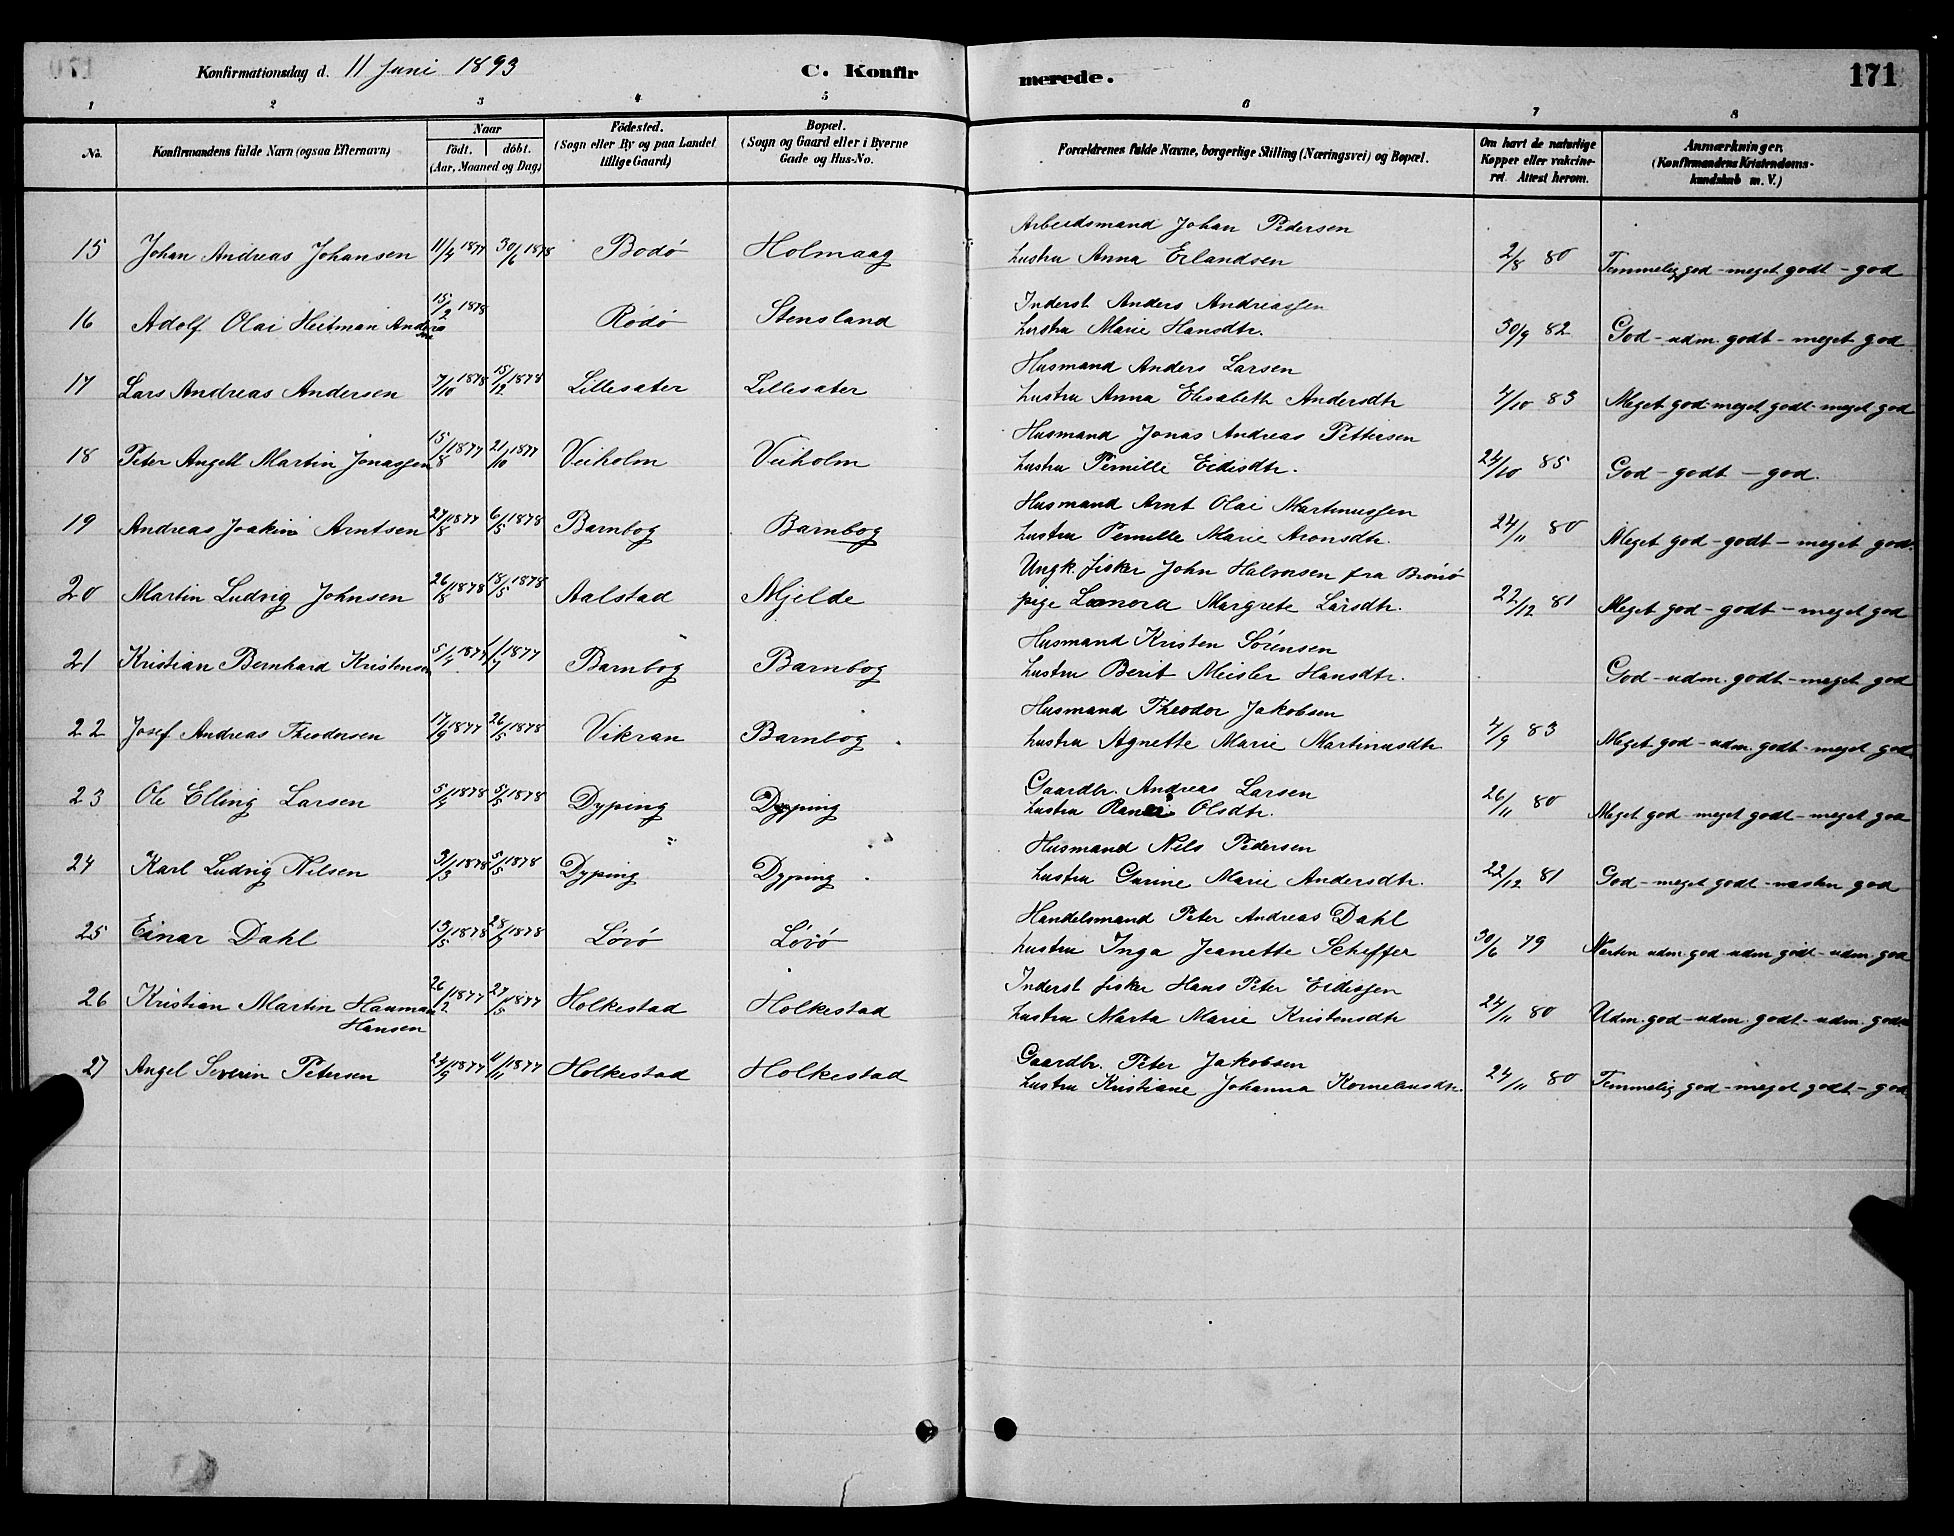 Konfirmationsdag d. 11 Juni 1893
C. Konfirmerede.
171
1 2 3 4 5 6 7 8
No.
Konfirmandens fulde Navn (ogsaa Efternavn)
Naar
født. døbt.
(Aar, Maaned og Dag)
Fødested.
(Sogn eller By og paa Landet
tillige Gaard)
Bopæl.
(Sogn og Gaard eller i Byerne
Gade og Hus-No.
Forældrenes fulde Navne, borgerlige Stilling (Næringsvei) og Bopæl.
Om havt de naturlige
Kopper eller vakcine-
ret. Attest herom.
Anmærkninger.
(Konfirmandens Kristendoms-
kundskab m. V.)
Arbeidsmand Johan Pedersen
15 Johan Andreas Johansen 11/4 1877 30/6 1878 Bodø Holmaag Hustru Anna Erlandsen 2/8 80 Temmelig god - meget godt - god
Inderst Anders Andreassen
16 Adolf Olai Heitman Andersen 15/2 1878 Rødø Stensland Hustru Marie Hansdtr. 30/9 82 God - udm. godt - meget god
Husmand Anders Larsen
17 Lars Andreas Andersen 7/10 1878 15/12 1878 Lillesæter Lillesæter Hustru Anna Elisabeth Andersdtr 4/10 83 Meget god - meget godt - meget god
Husmand Jonas Andreas Pettersen
18 Peter Angell Martin Jonassen 15/8 1877 21/10 1877 Veiholm Veiholm Hustru Pernille Eidisdtr. 24/10 85 God - godt - god.
Husmand Arnt Olai Martinussen
19 Andreas Joakim Arntsen 27/8 1877 6/5 1878 Barnbog Barnbog Hustru Pernille Marie Aronsdtr. 24/11 80 Meget god - godt - meget god.
Ungk. fisker John Halvorsen fra Brønø
20 Martin Ludvig Johnsen 26/8 1878 18/5 1878 Aalstad Mjelde pige Leonora Margrete Larsdtr. 22/12 81 Meget god - godt - meget god
Husmand Kristen Sørensen
21 Kristian Bernhard Kristensen 1877 1877 Barnbog Barnbog Hustru Berit Meisler Hansdtr. God - udm. godt - meget god
Husmand Theodor Jakobsen
22 Josef Andreas Theodorsen 17/9 1877 26/5 1878 Vikran Barnbog Hustru Agnette Marie Martinusdtr 4/9 83 Meget god - udm. godt - meget god
Gaardbr. Andreas Larsen
23 Ole Elling Larsen 5/4 1878 5/5 1878 Dyping Dyping Hustru Olsdtr. 26/11 80 Meget god - meget godt - meget god
Husmand Nils Pedersen
24 Karl Ludvig Nilsen 3/3 1878 5/5 1878 Dyping Dyping Hustru Gurine Marie Andersdtr. 22/12 81 God - meget godt - næsten god
Handelsmand Peter Andreas Dahl
25 Einar Dahl 13/5 1878 28/7 1878 Løvø Løvø Hustru Inga Jeanette Schiffer 30/6 79 Næsten udm. god - udm. godt - udm. god
Inderst fisker Hans Peter Eidissen
26 Kristian Martin Hauman 26/2 1877 27/5 1877 Holkestad Holkestad Hustru Marta Marie Kristensdtr 24/11 80 Udm. god - udm. godt - udm. god
Hansen
Gaardbr. Peter Jakobsen
27 Angel Severin Petersen 24/9 1877 11/11 1877 Holkestad Holkestad Hustru Kristiane Johanna Korneliusdtr. 24/11 80 Temmelig god - meget godt - god